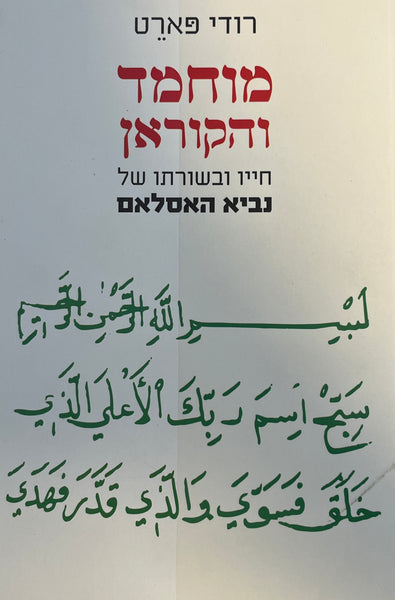 רודי פארֵט
מוחמד
והקוראן
חייו ובשורתו של
נביא האסלאם
لبْسِمِ اللَّهِ الرَّحْمَنِ الرَّحِيمِ
سَبِّحْ اِسمَ رَبِّكَ الْأَعْلَي الَّذِي
خَلَقَ فَسَوَّي وَالَّذِي قَدَّرَ فَهَدَي